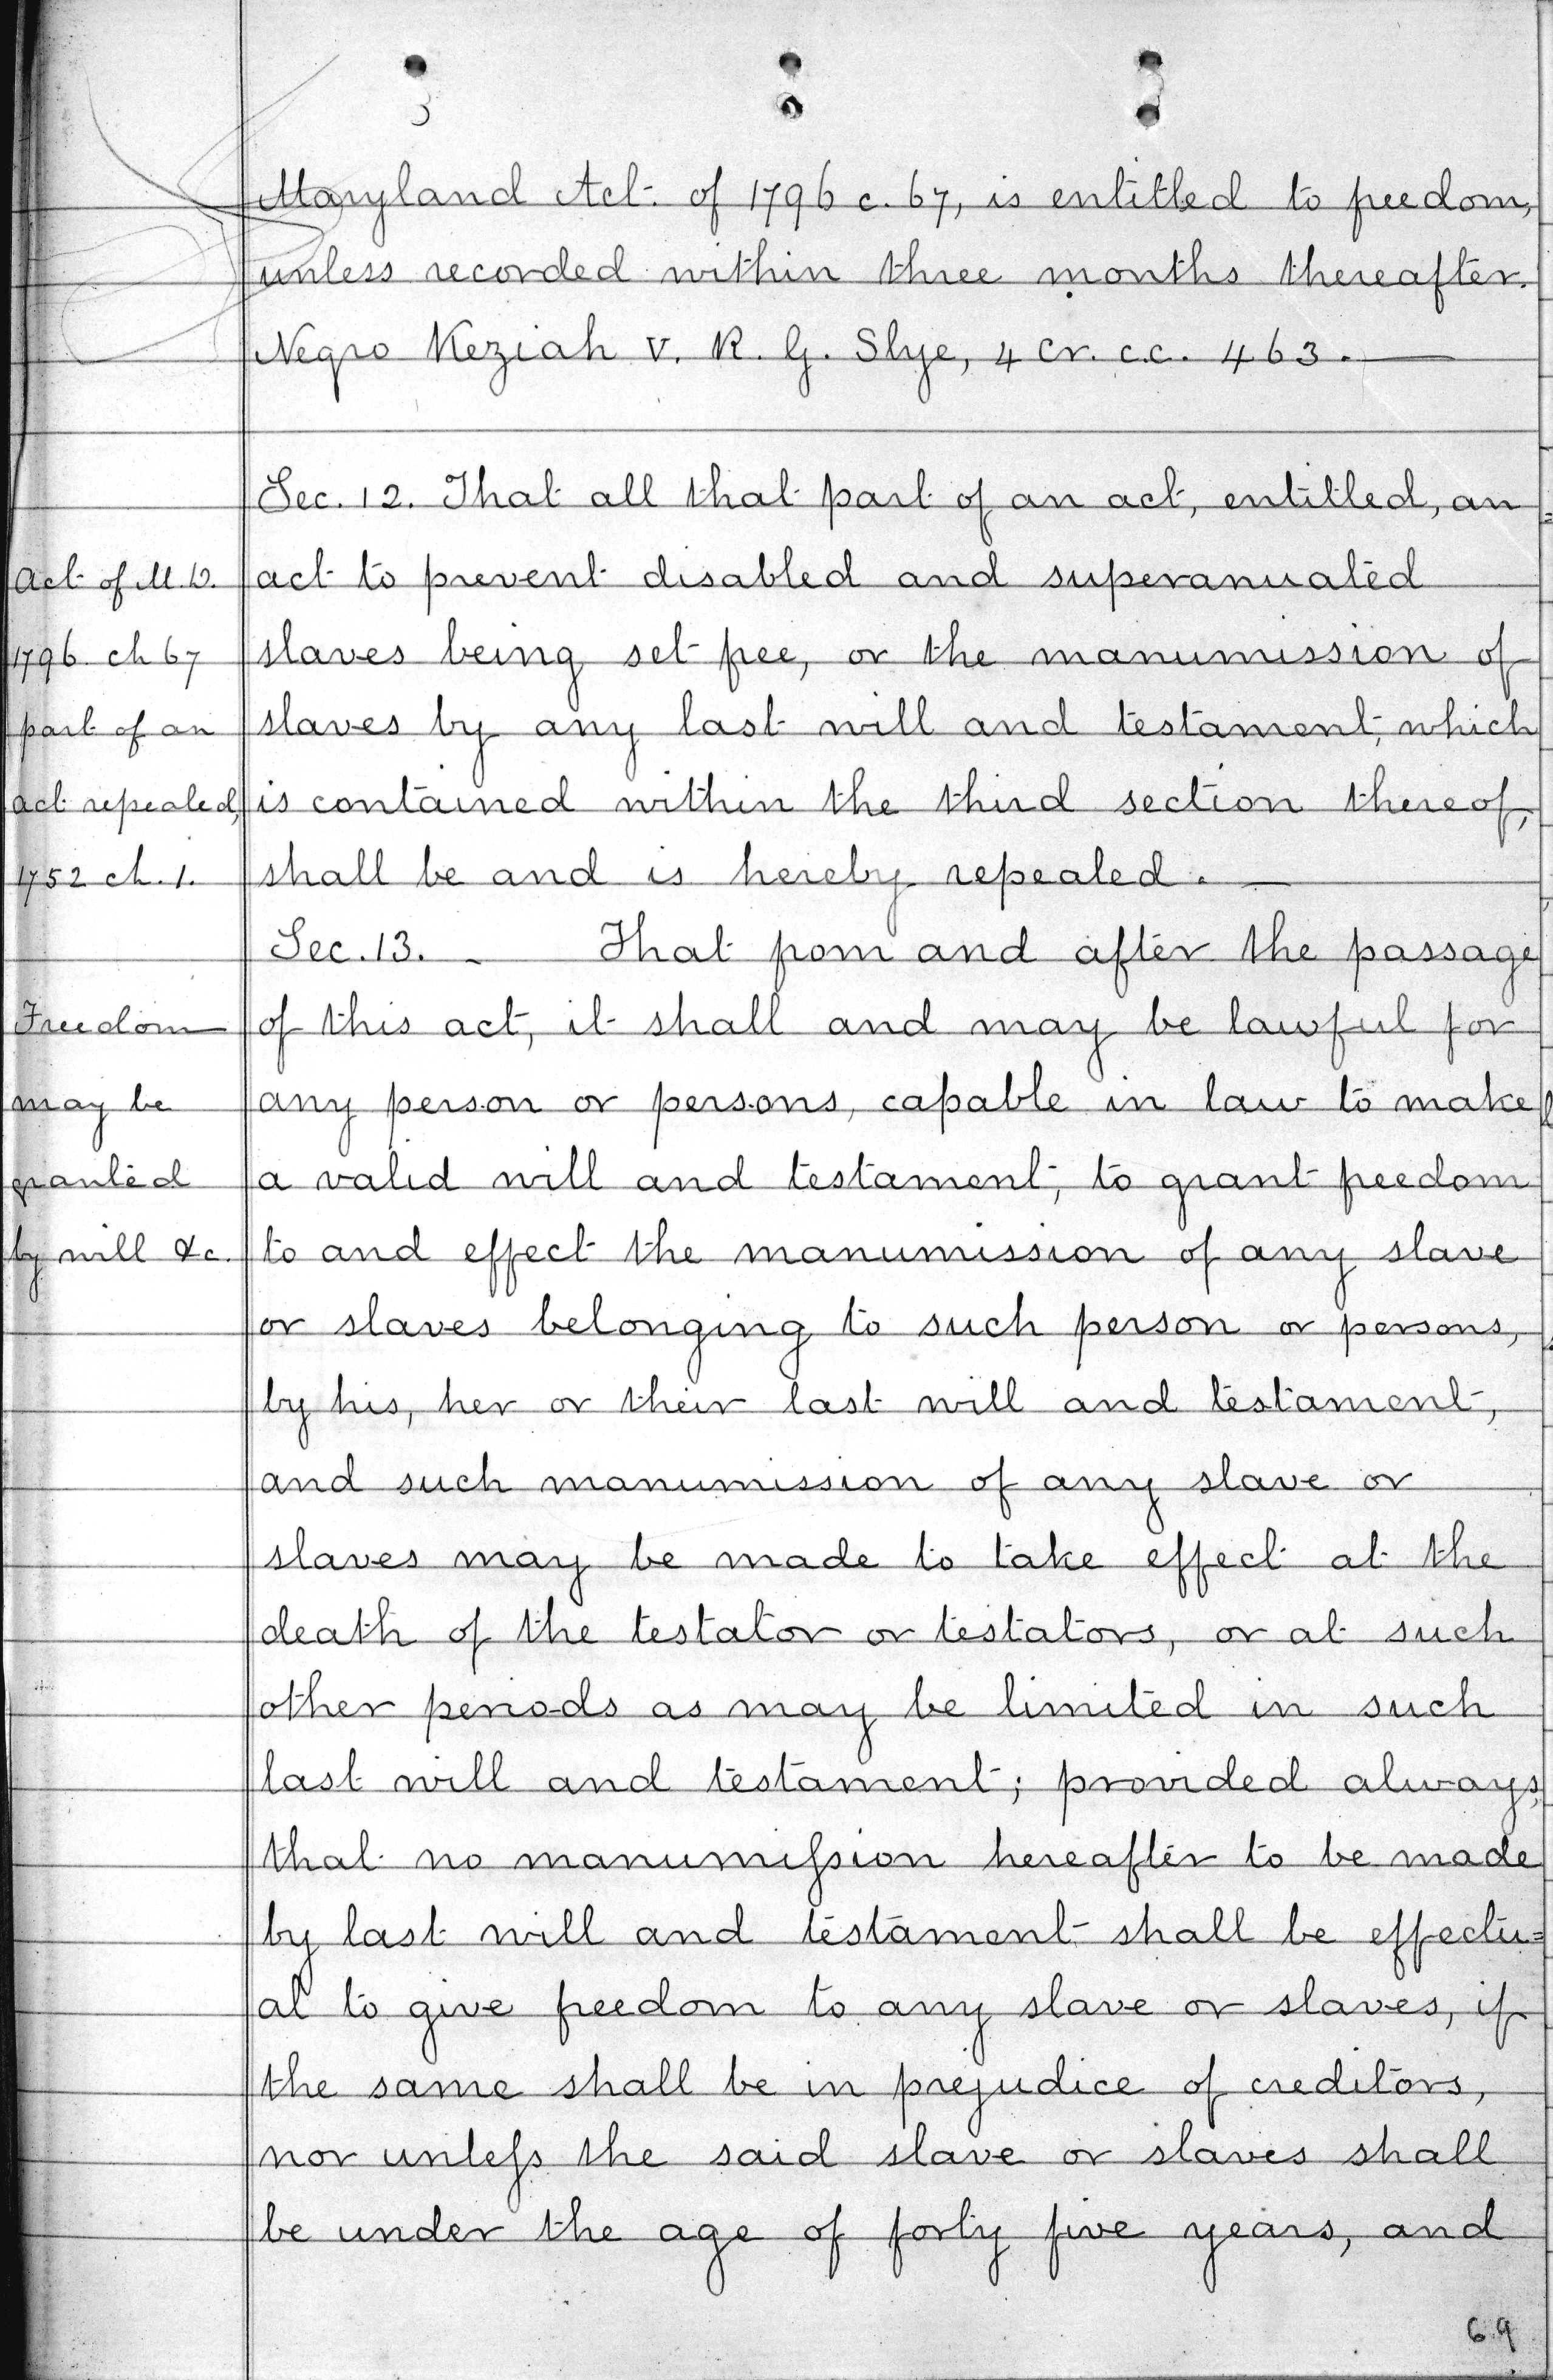 Maryland Act of 1796 c. 67, is entitled to freedom,
unless recorded within three months thereafter.
Negro Keziah v. R. G. Slye, 4 Cr. c.c. 463.
Sec. 12. That all that part of an act, entitled, an
act to prevent disabled and superanuated
slaves being set free, or the manumission of
slaves by any last will and testament, which
is contained within the third section thereof,
shall be and is hereby repealed.
Act of M.D.
1796 ch 67
part of an
act repealed,
1752 ch. 1.
Sec. 13. - That from and after the passage
of this act, it shall and may be lawful for
any person or persons, capable in law to make
a valid will and testament, to grant freedom
to and effect the manumission of any slave
or slaves belonging to such person or persons,
by his, her or their last will and testament,
and such manumission of any slave or
slaves may be made to take effect at the
death of the testator or testators, or at such
other periods as may be limited in such
last will and testament; provided always,
that no manumiſsion hereafter to be made
by last will and testament shall be effectu=
al to give freedom to any slave or slaves, if
the same shall be in prejudice of creditors,
nor unleſs the said slave or slaves shall
be under the age of forty five years, and
Freedom
may be
granted
by will &c.
69